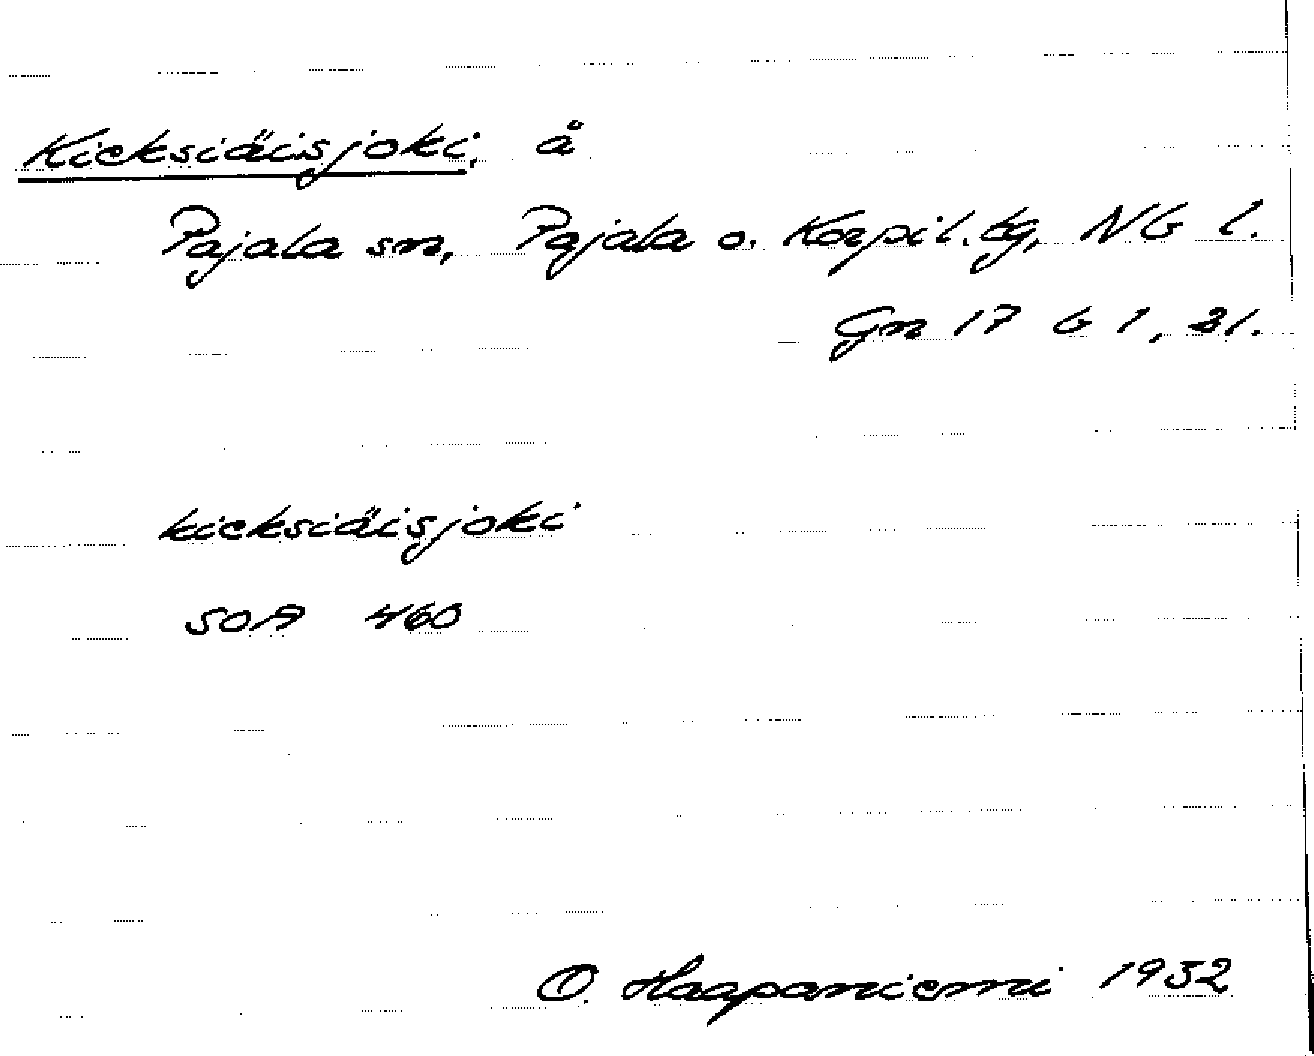 Kieksiäisjoki, å
Pajala sn, Pajala o. Korpil. tg, NB l.
Gn 17 G 1, 21.
kieksiäisjoki
SOA 460
O. Haapaniemi 1932